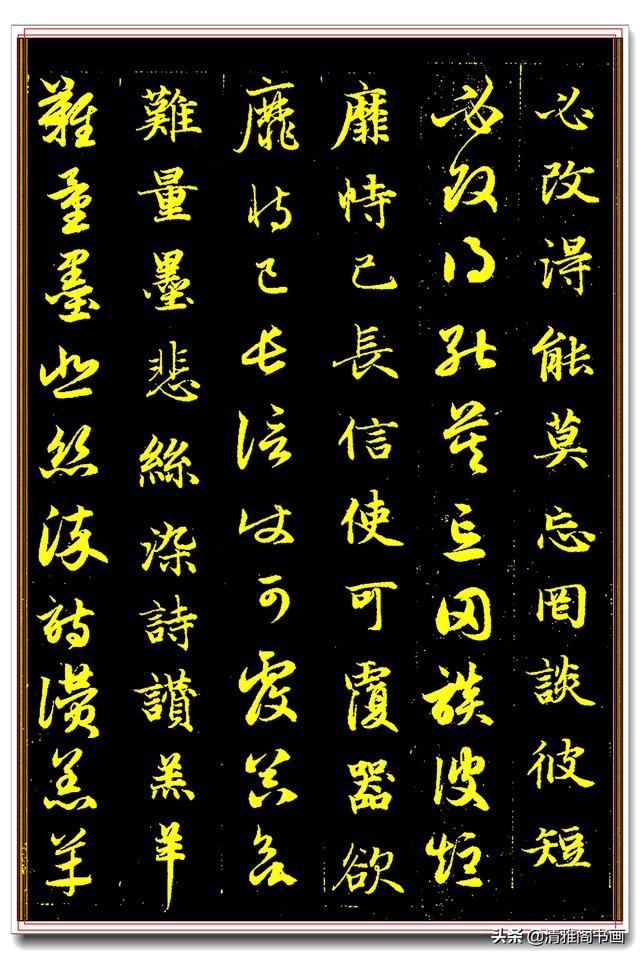 必改得能莫忘罔談彼短
必改得能莫忘罔談彼短
靡恃己長信使可覆器欲
靡恃己長信使可覆器欲
難量墨悲絲染詩讚羔羊
難量墨悲絲染詩讚羔羊
头条 @清雅阁书画